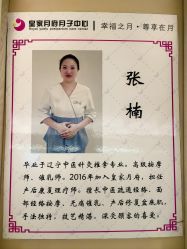 皇家月府月子中心
Royal yuefu postpartum care center
幸福之月·尊享在月
张楠
毕业于辽宁中医针灸推拿专业，高级按摩
师、催乳师。2016年加入皇家月府，担任
产后康复理疗师。擅长中医疏通经络、面
部经络按摩、无痛催乳、产后修复盆底肌，
手法独特，技艺精湛，深受顾客的喜爱。